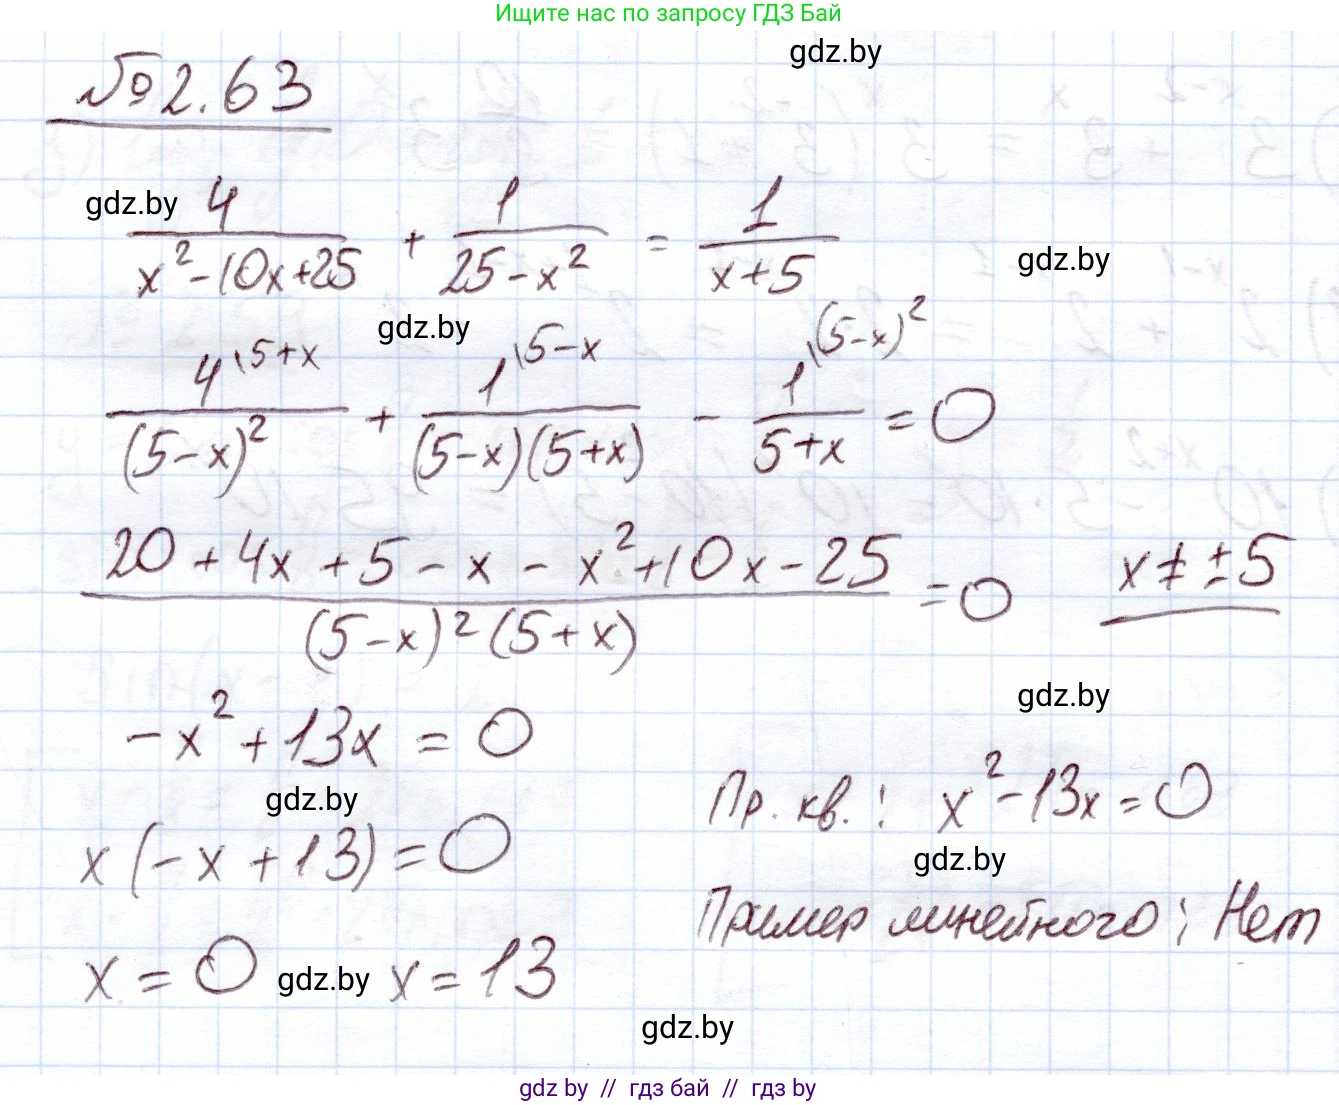 Ищите нас по запросу ГДЗ Бай
gdz.by
№2.63
gdz.by
4/(x²-10x+25) + 1/(25-x²) = 1/(x+5)
gdz.by
gdz.by
4\5+x/(5-x)² + 1\5-x/(5-x)(5+x) - 1\(5-x)²/5+x = 0
20+4x+5-x-x²+10x-25/(5-x)²(5+x) = 0 x≠±5
gdz.by
-x²+13x=0
gdz.by
Пр. кв.: x²-13x=0
x(-x+13)=0
gdz.by
Пример линейного: Нет
x=0 gdz.by x=13
gdz.by
gdz by // гдз бай // гдз by